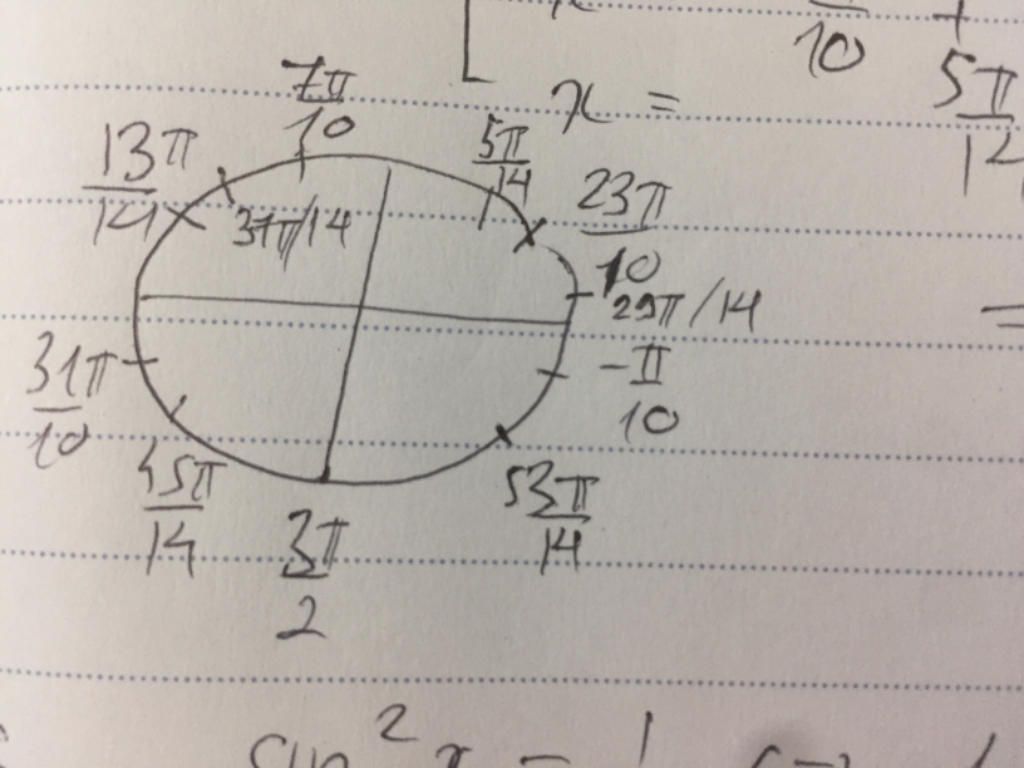 10
x =
5π
14
7π
10
13π
14
37π/14
5π
14
23π
10
29π/14
=
-π
10
31π
10
45π
14
3π
2
53π
14
sin² x = 1